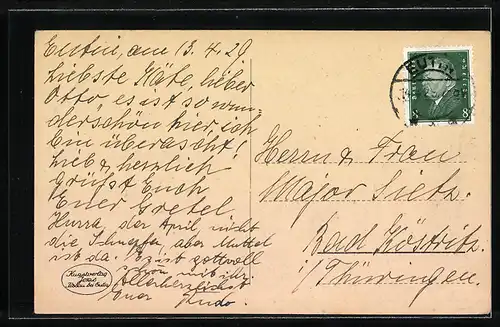 Eutin, am 13.4.29
Liebste Käte, lieber
Otto, es ist so wun-
derschön hier, ich
bin überascht!
Lieb & herzlich
grüßt Euch
Euer Gretel
Hurra, der April, nicht
die Schnupfen, aber Muttel
ist da. Es ist gottvoll
schon mit ihr.
Allerherzlichst
Euer
Kunstverlag
EUTIN
8 8
Herrn & Frau
Major Sietz.
Bad Köstritz
i/Thüringen.